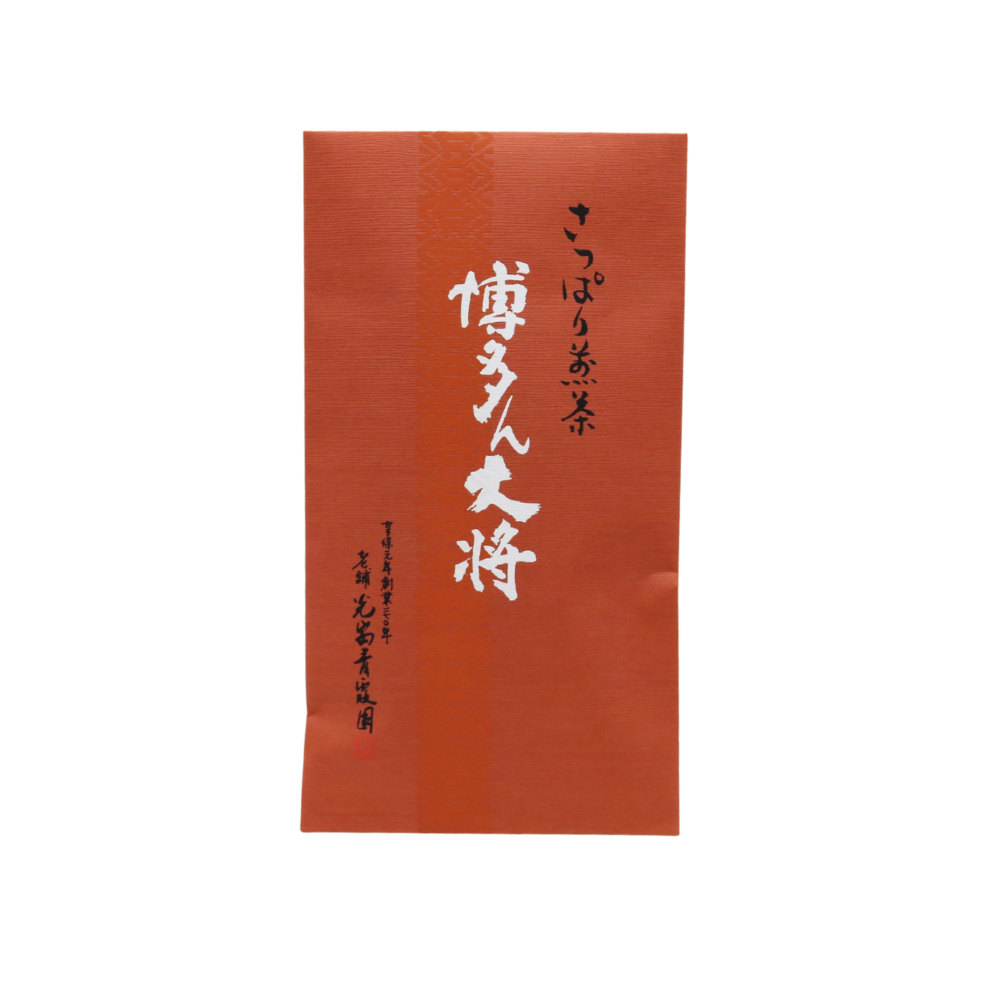 さっぱり煎茶
博多ん大将
享保元年創業二七〇年
老舗光安青霞園